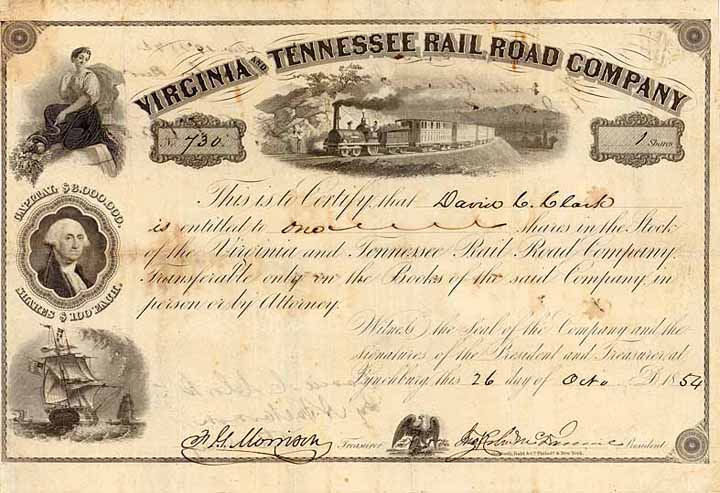 VIRGINIA AND TENNESSEE RAIL ROAD COMPANY
No. 730.
1 Shares
This is to Certify, that David C. Clark
is entitled to one shares in the Stock
of the Virginia and Tennessee Rail Road Company,
Transferable only on the Books of the said Company, in
person or by Attorney.
CAPITAL $3,000,000.
SHARES $100 EACH.
Witness, the Seal of the Company and the
signatures of the President and Treasurer, at
Lynchburg, this 26 day of Octo D. 1854
Morrison Treasurer
President